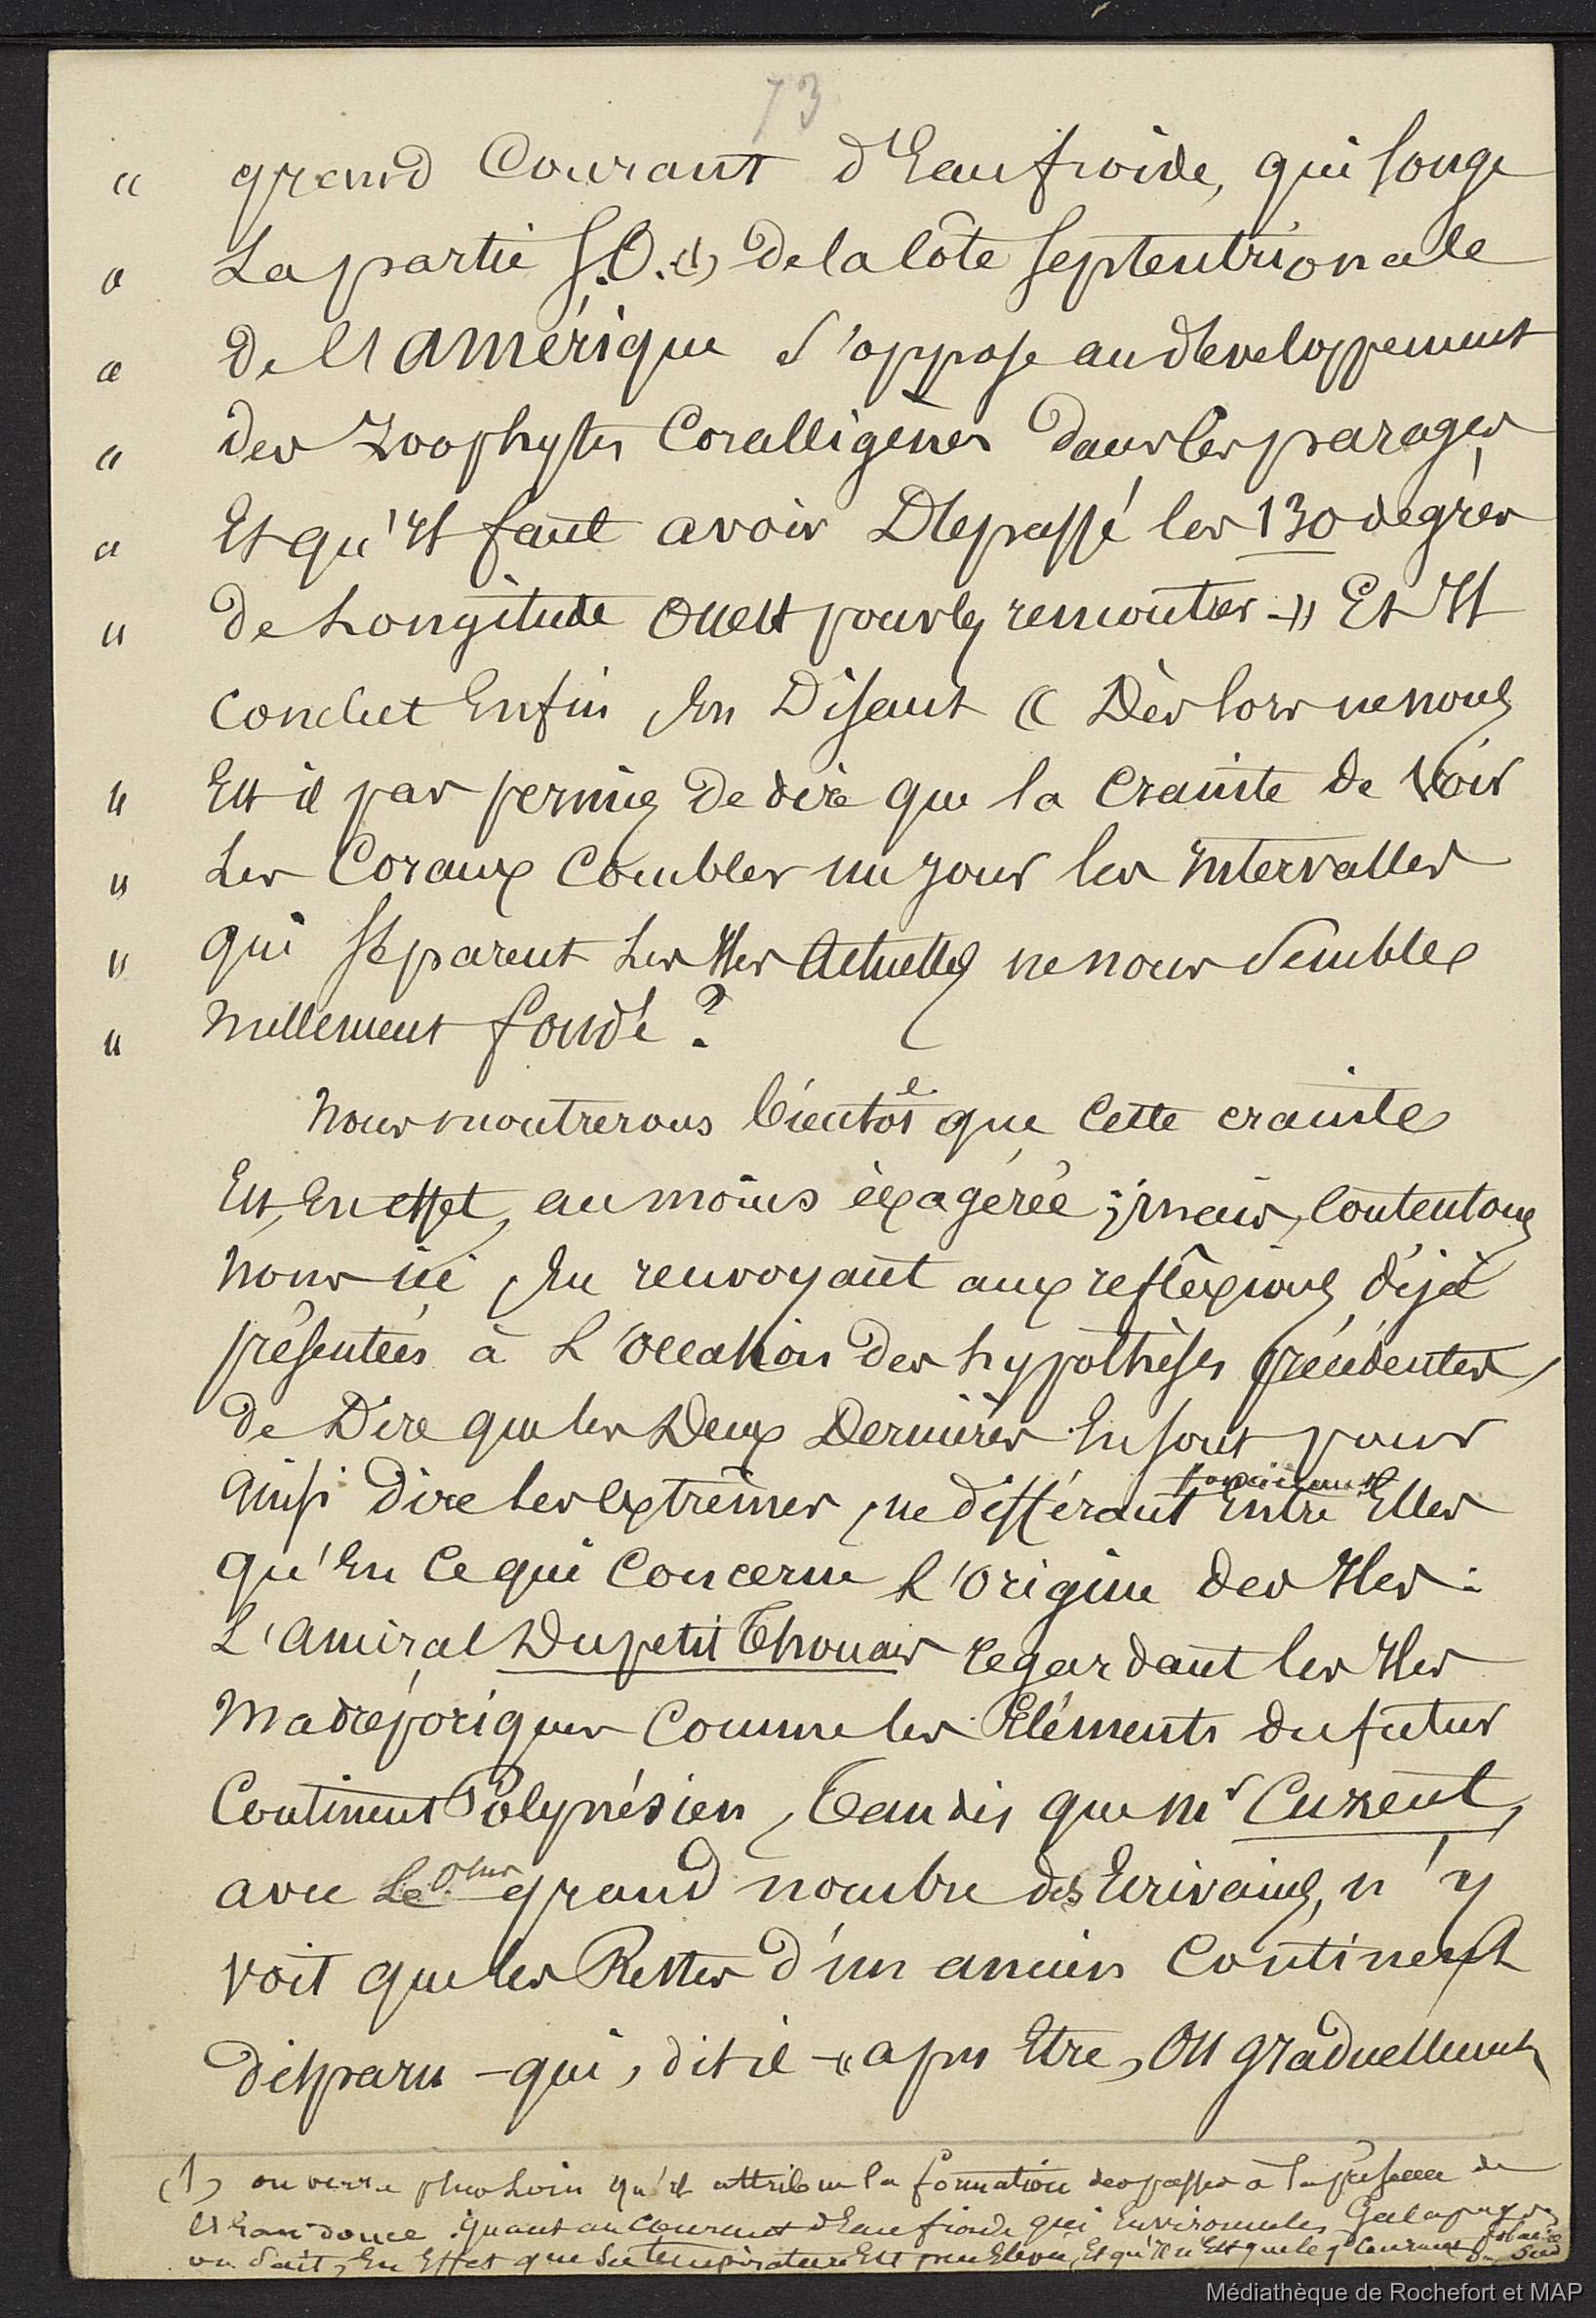 73
" grand Courant d'Eau froide, qui longe
" La partie S.O.(1) de la Côte septentrionale
" de l'amérique s'oppose au développement
" des Zoophytes Coralligènes dans les parages,
" Et qu'il faut avoir Dépassé les 130 degrés
" de Longitude Ouest pour les remontrer -" Et Il
Conclut Enfin, En Disant " Dès lors ne nous
" Est il pas permis de dire que la Crainte de Voir
" Les Coraux Combler un jour les Intervalles
" qui séparent Les Iles Actuelles ne nous Semble
" nullement fondé ?
Nous montrerons bientôt que Cette crainte
Est, En effet, au moins éxagérée ; mais, Contentons
Nous ici, En renvoyant aux réflexions déjà
présentées à L'occasion des hypothèses précédentes,
de Dire que les Deux Dernières En sont pour
ainsi Dire les extrêmes, ne différant Entre Elles
qu'En Ce qui Concerne L'Origine des Iles :
L'amiral Dupetit Thouars regardant les Iles
Madréporiques Comme les Eléments du futur
Continent Polynésien, Tandis que Mr Cuzent,
avec Le plus grand nombre des Ecrivains, n'y
voit que les Restes d'un ancien Continent
disparu - qui, dit il - " après Etre, Ou graduellement
(1) on verra plus Loin qu'il attribue la formation des passes à la présence de
l'Eau douce. Quant au Courant d'Eau froide qui Environne les Galapagos,
on Sait, En Effet que Sa température Est peu Elevée, Et qu'Il n'Est que le gd Courant polaire du Sud
Médiathèque de Rochefort et MAP